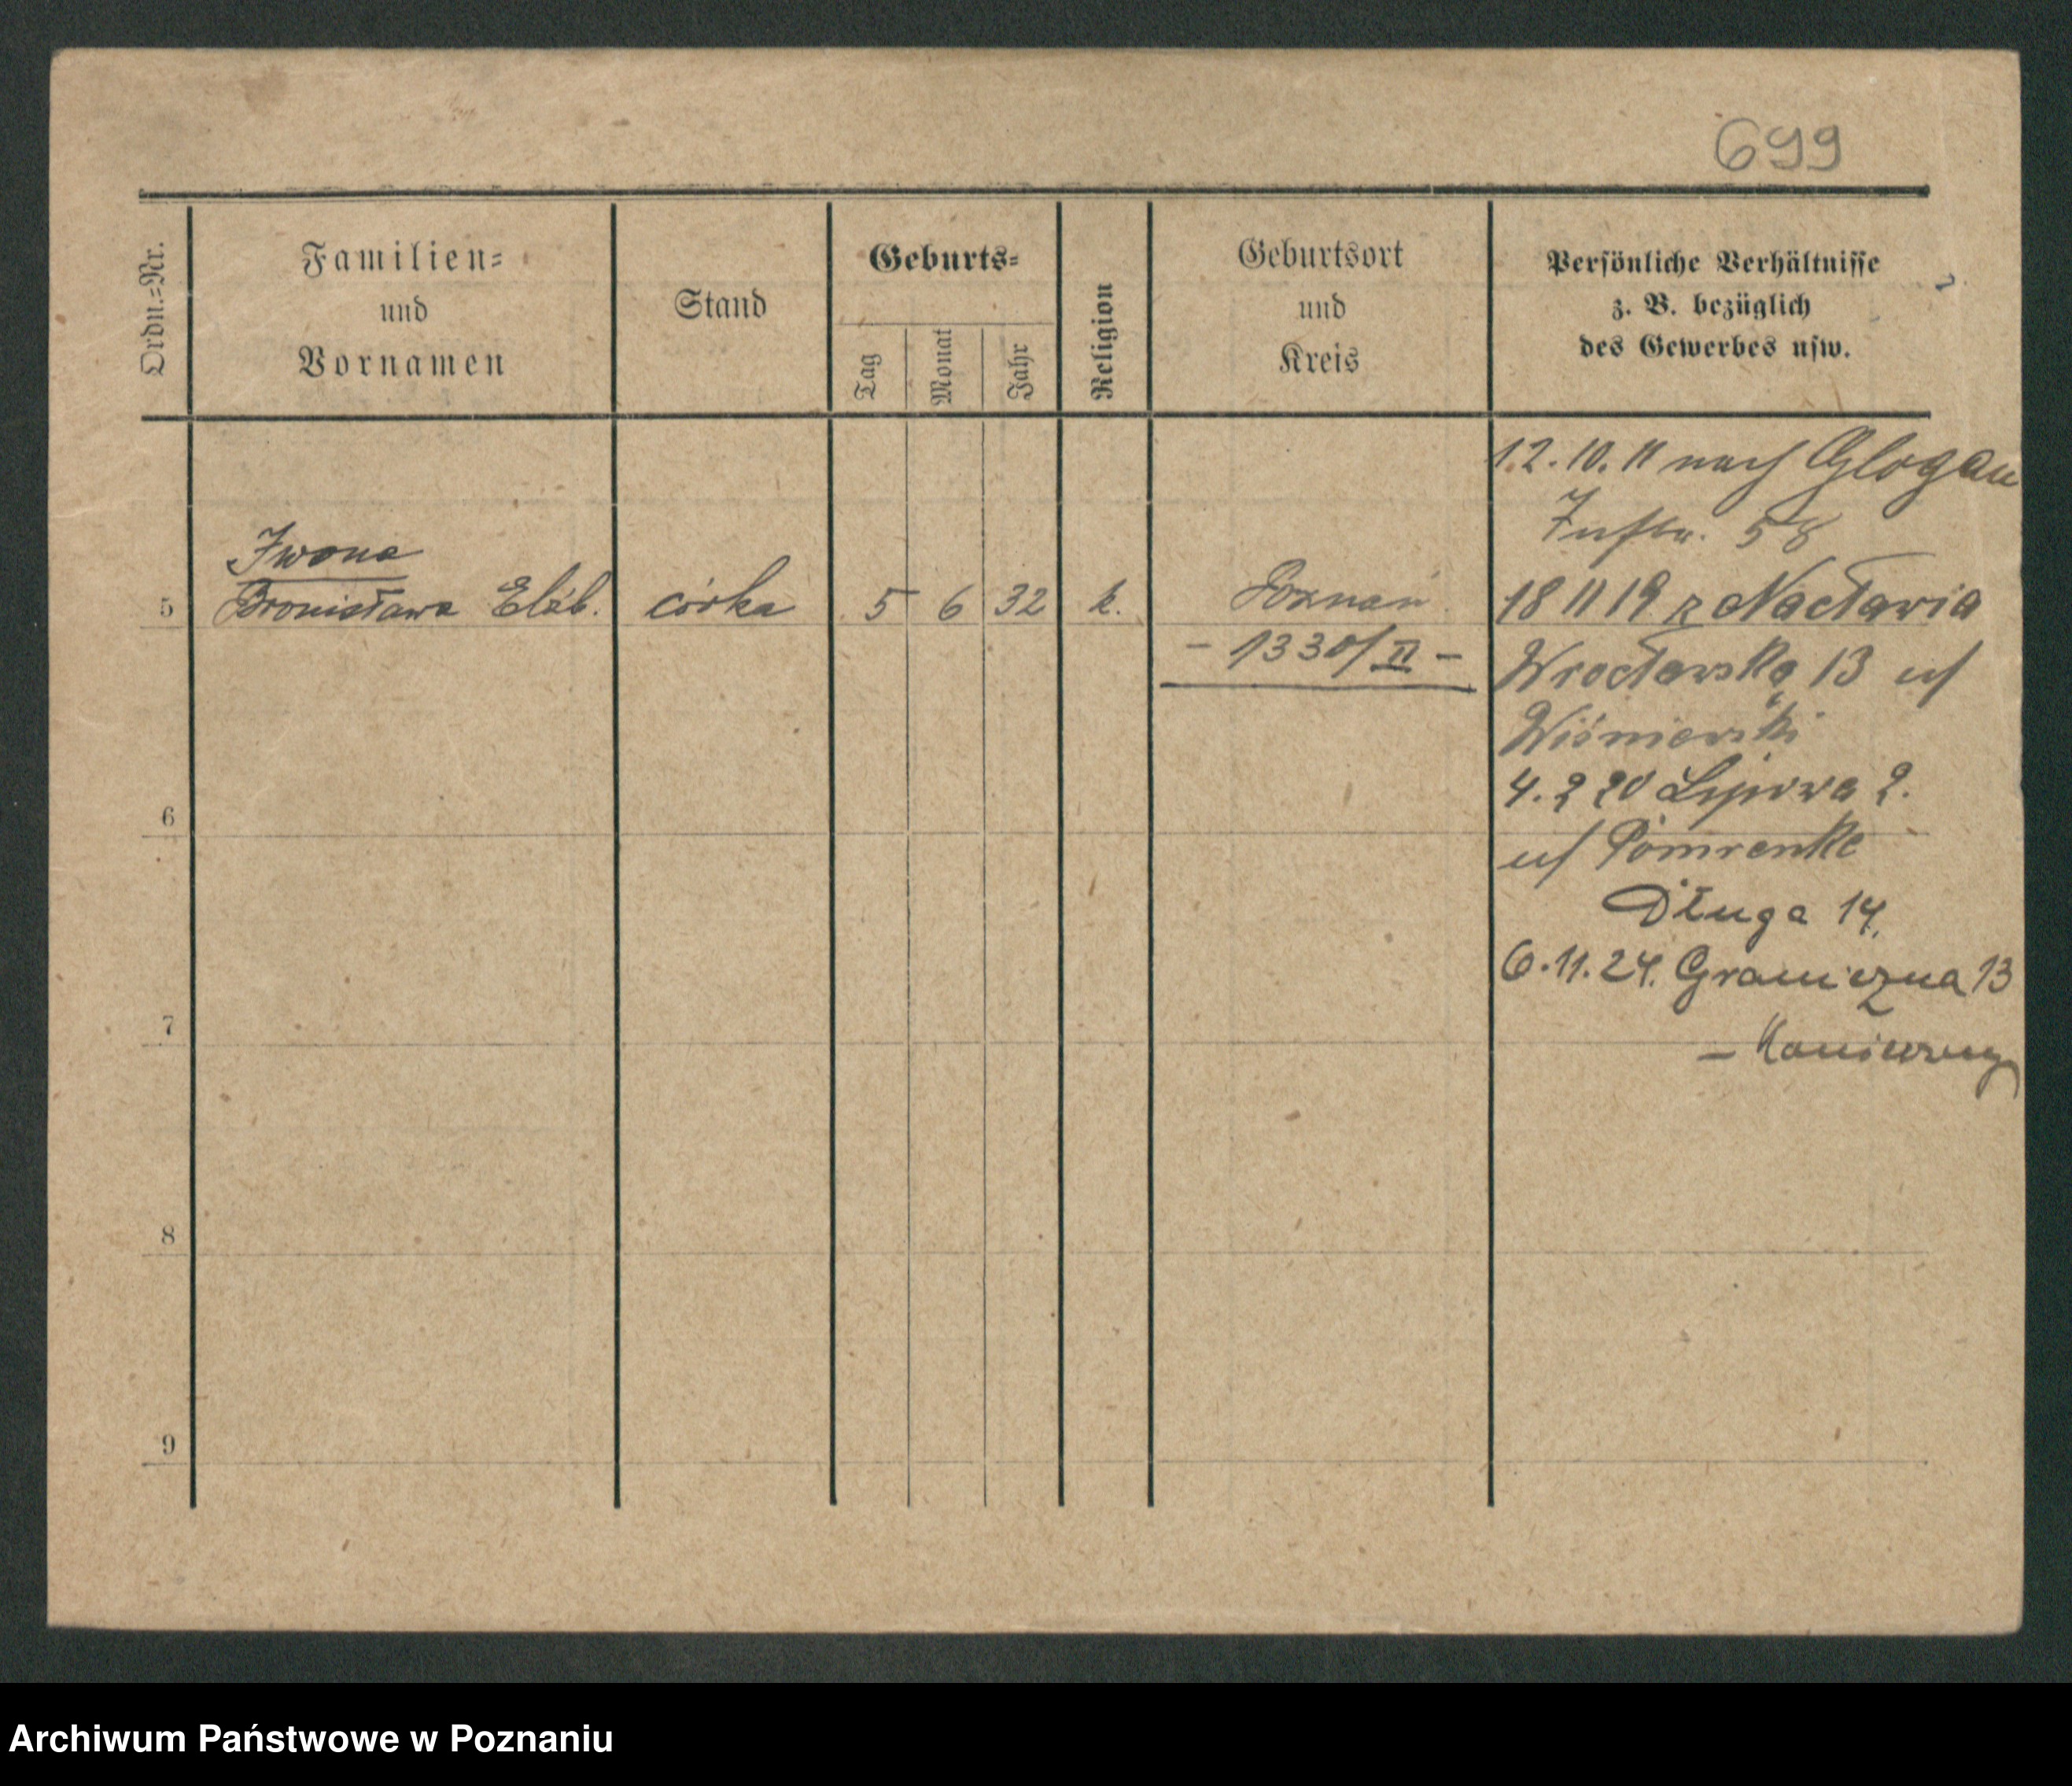 699
Ordn.=Nr.
Familien=
und
Vornamen
Stand
Geburts=
Tag
Monat
Jahr
Religion
Geburtsort
und
Kreis
Persönliche Verhältnisse
z. B. bezüglich
des Gewerbes usw.
12.10.11 nach Glogau
Inftr. 58
Iwona
5 Bronisława Elżb. córka 5 6 32 k. Poznań
- 1330/II -
18 11 19 z Nacławia
Wrocławska 13 u/
Wiśniewski
4.2 20 Lipowa 2.
u/ Pomrenke
Długa 14.
6.11.24. Graniczna 13
6
7
8
9
Archiwum Państwowe w Poznaniu